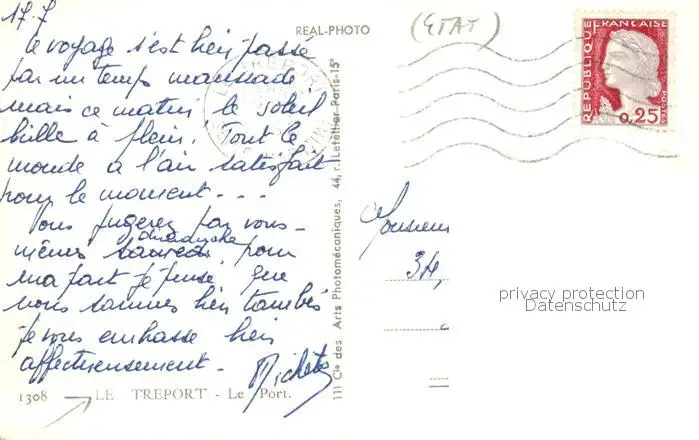 17-7
Le voyage s'est bien passé
par un temps maussade
mais ce matin le soleil
brille à plein. Tout le
monde a l'air satisfait
pour le moment...
Vous jugerez par vous-
mêmes dimanche pour
ma part je pense que
nous sommes bien tombés
je vous embrasse bien
affectueusement.
1308 LE TREPORT - Le Port.
REAL-PHOTO
111 Cie des Arts Photomécaniques, 44, r. Letellier Paris-15e
(ETAT)
REPUBLIQUE FRANÇAISE
POSTES
0,25
Monsieur
34,
privacy protection
Datenschutz